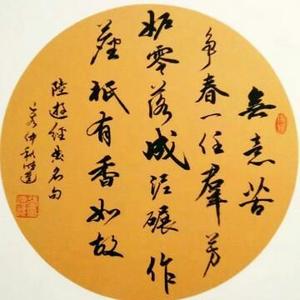 無意苦
争春一任羣芳
妬零落成泥碾作
塵祇有香如故
陸游經典名句
仲秋